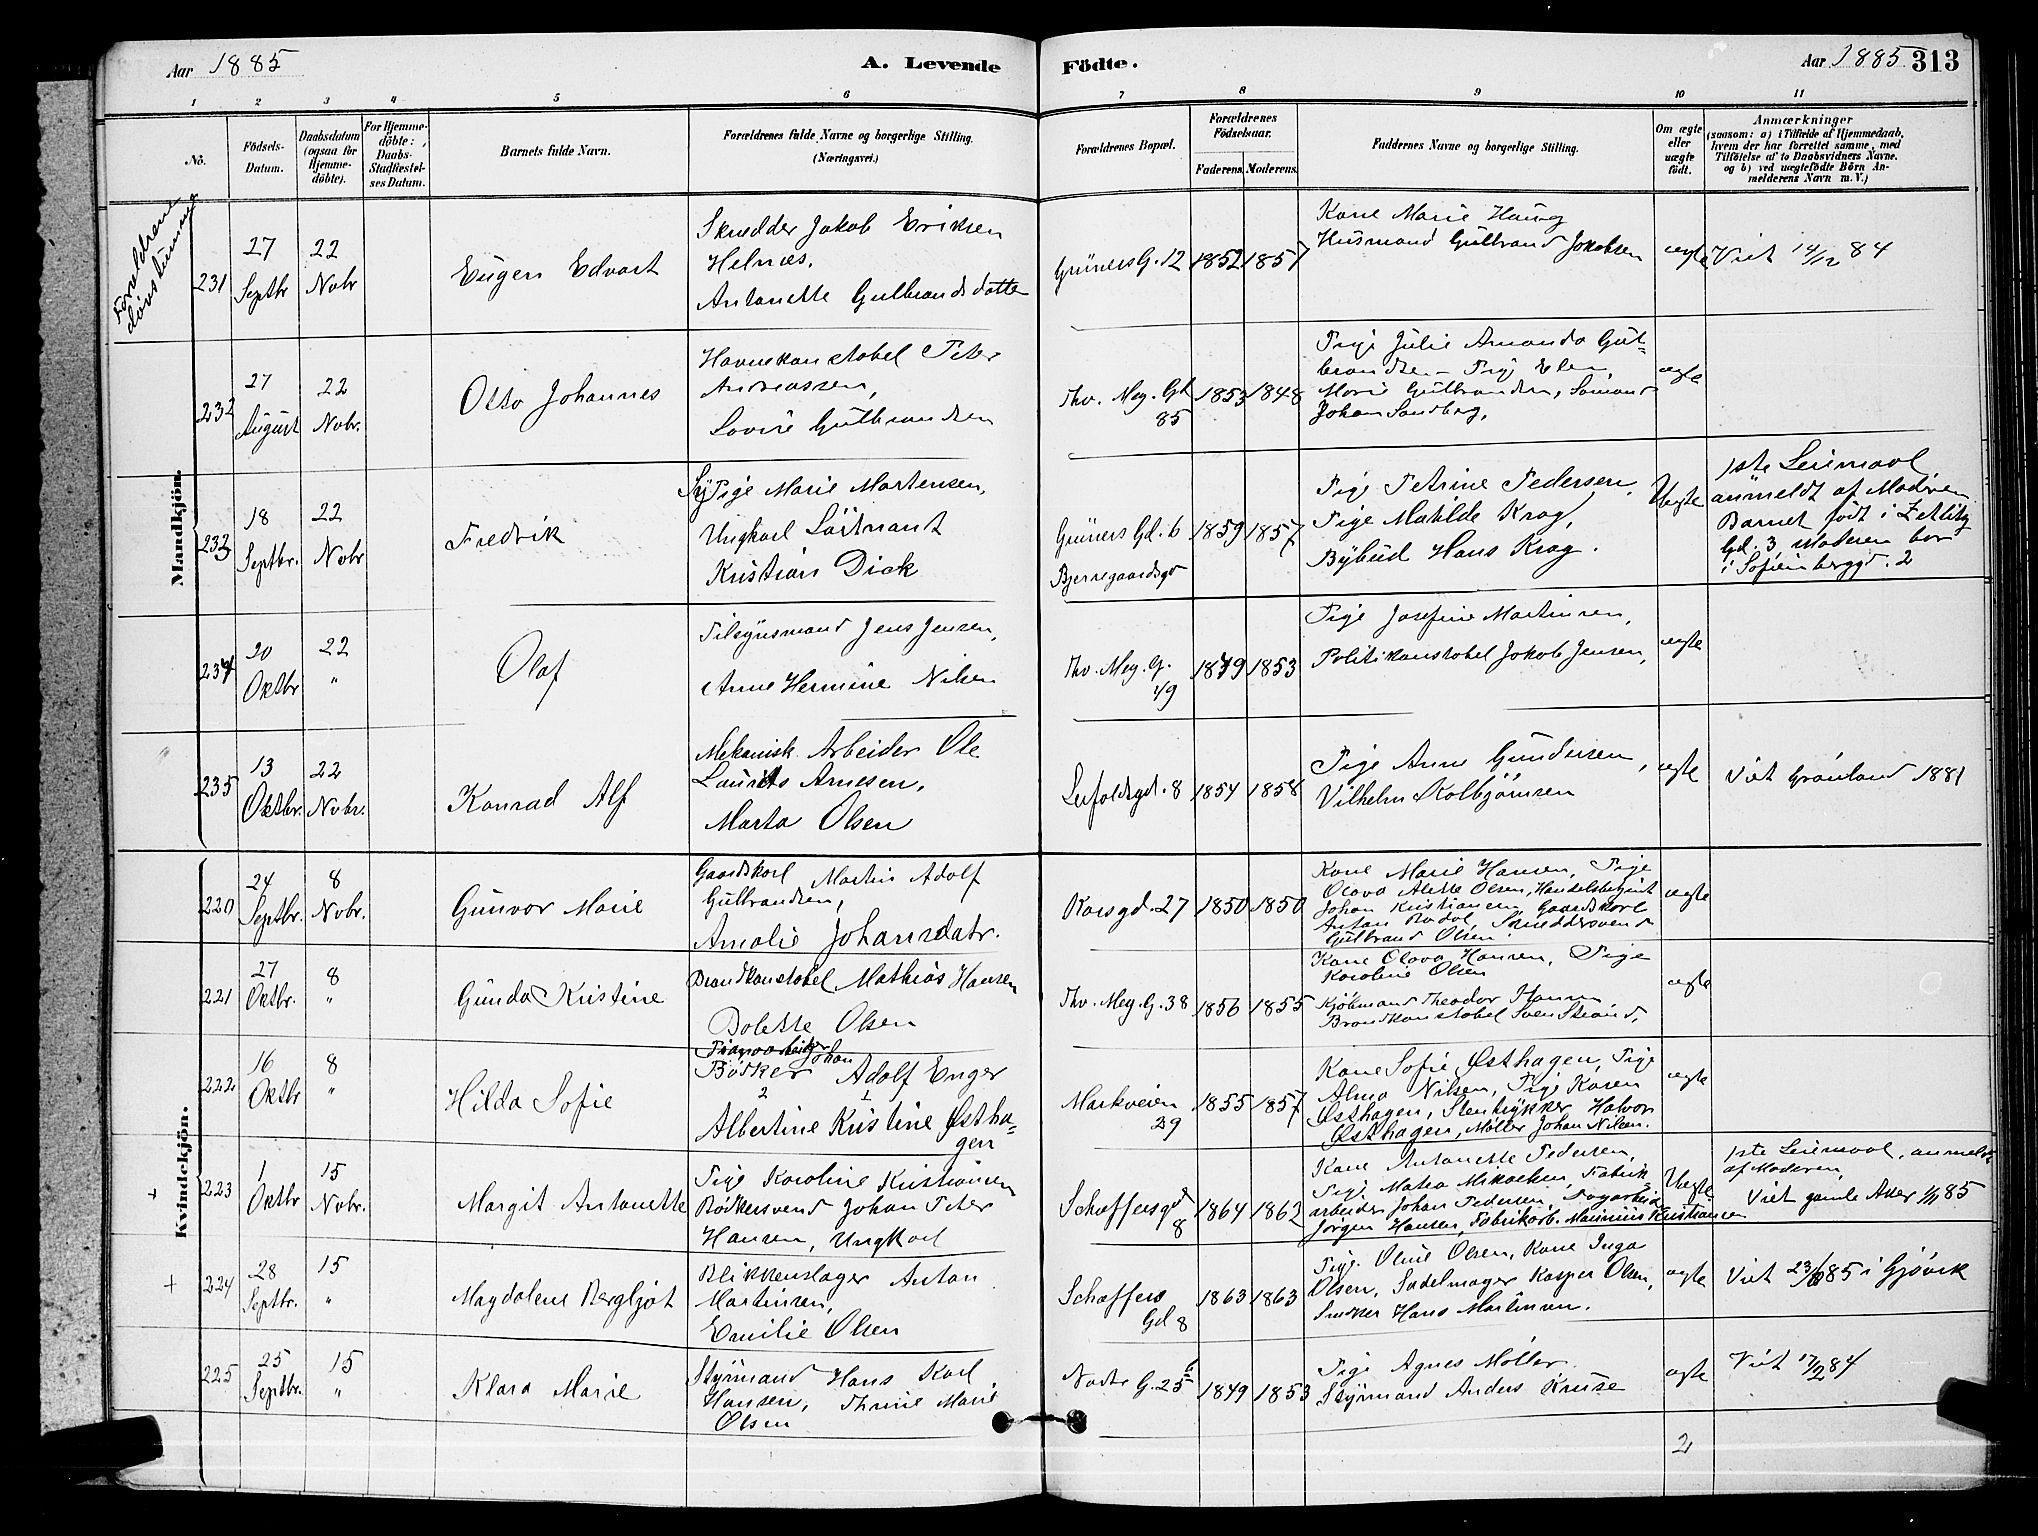 Aar 1885
A. Levende
Födte.
Aar 1885 313
1 2 3 4 5 6 7 8 9 10 11
No.
Födsels-
Datum.
Daabsdatum
(ogsaa for
Hjemme-
döbte).
For Hjemme-
döbte:
Daabs-
Stadfæstel-
ses Datum.
Barnets fulde Navn.
Forældrenes fulde Navne og borgerlige Stilling.
(Næringsvei.)
Forældrenes Bopæl.
Forældrenes
Födselsaar.
Faderens. Moderens.
Faddernes Navne og borgerlige Stilling.
Om ægte
eller
uægte
födt.
Anmærkninger
(saasom: a) i Tilfælde af Hjemmedaab,
hvem der har forrettet samme, med
Tilföielse af to Daabsvidners Navne,
og b) ved uægtefödte Börn An-
melderens Navn m. V.)
Mandkjön.
Forældrene
døvstumme
231
27
Septbr
22
Nobr
Eugen Edvart
Skrædder Jakob Eriksen
Helnæs.
Antonette Gulbrandsdatter
Grüners G. 12
1852
1857
Kone Marie Haug
Husmand Gulbrand Jakobsen
ægte
Viet 14/12 84
232
27
August
22
Nobr.
Otto Johannes
Havnekonstabel Peter
Andreassen,
Lovise Gulbrandsen
Thv. Mey. Gd
85
1853
1848
Pige Julie Amanda Gul=
brandsen - Pige Elen
Marie Gulbrandsen, Sømand
Johan Sandberg.
ægte
233
18
Septbr.
22
Nobr
Fredrik
Sypige Marie Martensen,
Ungkarl Löitnant
Kristian Dick
Grüners Gd. 6
Bjerregaardsgd
1859
1857
Pige Petrine Pedersen,
Pige Matilde Krag,
Bybud Hans Krag.
Uægte
1ste Leiermaal
anmeldt af Moderen
Barnet født i Zetlitz
Gd. 3, Moderen bor
i Sofienberggd. 2
234
20
Oktbr
22
"
Olaf
Tilsynsmand Jens Jensen,
Anne Hermine Nilsen
Thv. Mey. G.
49
1849
1853
Pige Josefine Martinsen,
Politikonstabel Jakob Jensen,
ægte
235
13
Oktbr.
22
Nobr.
Konrad Alf
Mekanisk Arbeider Ole
Laurits Arnesen,
Marta Olsen
Leifoldsgd. 8
1854
1858
Pige Anne Gundersen,
Vilhelm Kolbjørnsen
ægte
Viet Grønland 1881
Kvindekjön.
220
24
Septbr.
8
Nobr.
Gunvor Marie
Gaardskarl Martin Adolf
Gulbrandsen,
Amalie Johansdatr.
Korsgd. 27
1850
1850
Kone Marie Hansen, Pige
Olava Alette Olsen, Handelsbetjent
Johan Kristiansen, Gaardskarl
Anton Rodal, Skræddersvend
Gulbrand Olsen
ægte
221
27
Oktbr.
8
"
Gunda Kristine
Brandkonstabel Mathias Hansen
Dolette Olsen
Thv. Mey. G. 38
1856
1855
Kone Olava Hansen, Pige
Karoline Olsen
Kjøbmand Theodor Hansen,
Brandkonstabel Sven Strand,
ægte
222
16
Oktbr
8
"
Hilda Sofie
Pianoarbeider
Bødker Johan Adolf Enger
2 1
Albertine Kristine Østha=
gen
Markveien
29
1855
1857
Kone Sofie Østhagen, Pige
Alma Nilsen, Pige Karen
Østhagen, Stentrykker Halvor
Østhagen, Møller Johan Nilsen.
ægte
+
223
1
Oktbr
15
Nobr.
Margit Antonette
Pige Karoline Kristiansen
Bødkersvend Johan Peter
Hansen, Ungkarl
Schæffersgd
8
1864
1862
Kone Antonette Pedersen,
Pige Matea Mikaelsen, Fabrik=
arbeider Johan Pedersen, Fagarbeid
Jørgen Hansen, Fabrikarb. Marinius Kristiansen
Uægte
1ste Leiermaal, anmeldt
af Moderen
Viet gamle Aker 1/11 85
+
224
28
Septbr.
15
"
Magdalene Bergljot
Blikkenslager Anton
Martinsen,
Emilie Olsen
Schæffers
Gd 8
1863
1863
Pige Oline Olsen, Kone Inga
Olsen, Sadelmager Kasper Olsen,
Snedker Hans Martinsen.
ægte
Viet 23/6 85 i Gjøvik
225
25
Septbr.
15
"
Klara Marie
Styrmand Hans Karl
Hansen, Thrine Marie
Olsen
Nodre G. 25 b
1849
1853
Pige Agnes Møller
Styrmand Anders Kruse
ægte
Viet 17/2 84
2